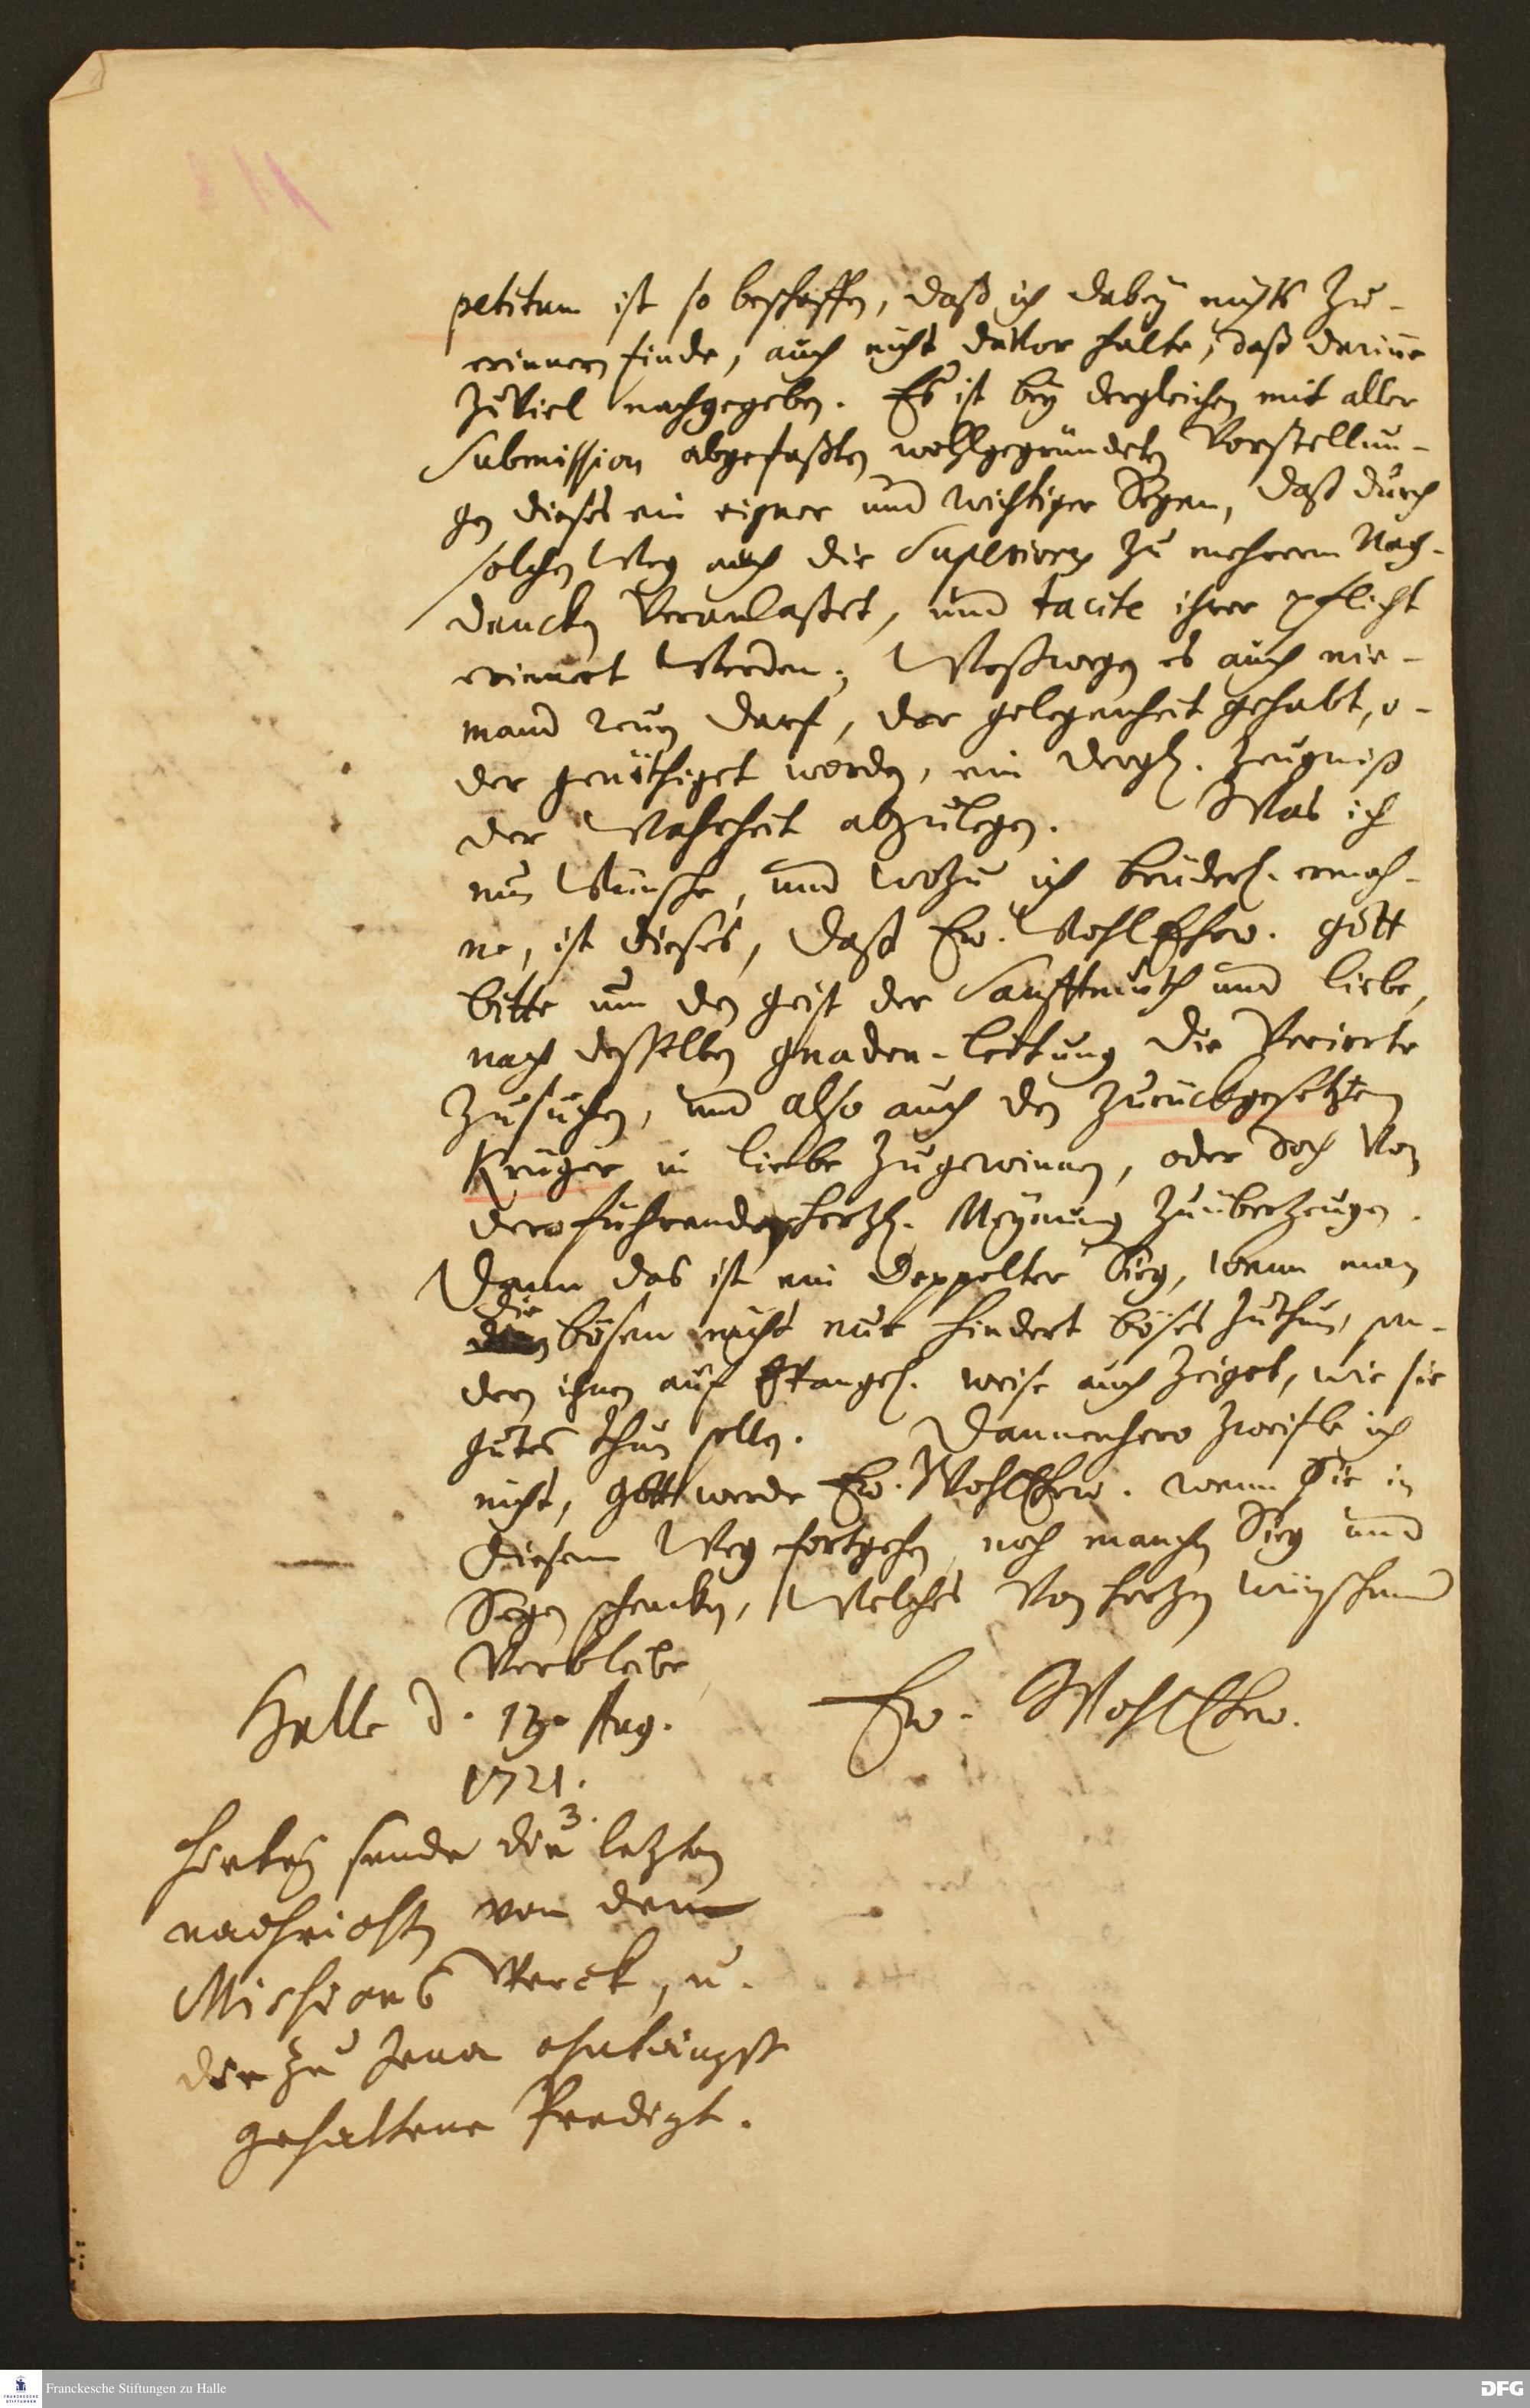 petitum ist so beschaffen, daß ich dabey nichts zu-
erinnern finde, auch nicht davor halte, daß darinne
zu viel nachgegeben. Es ist bey dergleichen mit aller
Submission abgefaßten wohlgegründeten Vorstellun-
gen dieses ein eigner und wichtiger Segen, daß durch
solchen Weg auch die Superiores zu mehrerm Nach-
dencken veranlaßet, und tacite ihrer pflicht
erinnert werden; Weßwegen es auch nie-
mand reuen darf, der gelegenheit gehabt, o-
der genöthiget worden, ein dergl. Zeugniß
der Wahrheit abzulegen. Was ich
nun wünsche, und wozu ich brüderl. ermah-
ne, ist dieses, daß Ew. WohlEhrw. gott
bitte um den geist der Sanfftmuth und liebe,
nach desselben gnaden-leitung die Verirrte
zusuchen, und also auch den zurückgesetzten
Krüger in liebe zugewinnen, oder doch von
dero führenden hertzl. Meynung zuüberzeugen.
Denn das ist ein doppelter Sieg, wenn man
die
bösen nicht nur hindert böses zuthun, son-
dern ihnen auf Evangel. weise auch zeiget, wie sie
gutes thun sollen. Dannenhero zweifle ich
nicht, gott werde Ew. WohlEhrw. wenn Sie in
diesem Weg fortgehen, noch manchen Sieg und
Segen schencken, Welches von hertzen wünschend
Verbleibe
Halle d. 13. Aug. Ew. WohlEhrw.
1721.
3.
Hierbey sende die letzten
nachrichten von dem
Missions Werck, u.
die zu Jena ohnlängst
gehaltene Predigt.
Franckesche Stiftungen zu Halle
DFG